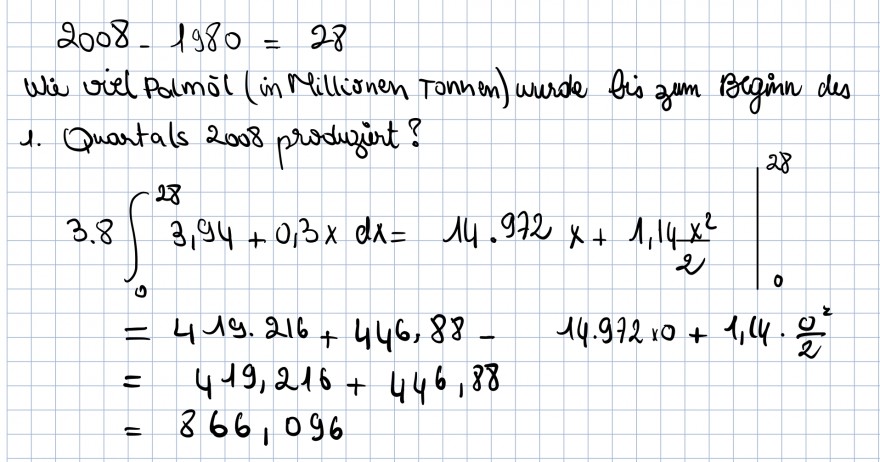 2008 - 1980 = 28
Wie viel Palmöl (in Millionen Tonnen) wurde bis zum Beginn des
1. Quartals 2008 produziert?
3.8 ∫₀²⁸ 3,94 + 0,3x dx = 14.972 x + 1,14 x²/2 |₀²⁸
= 419.216 + 446,88 - 14.972 x0 + 1,14 · 0²/2
= 419,216 + 446,88
= 866,096